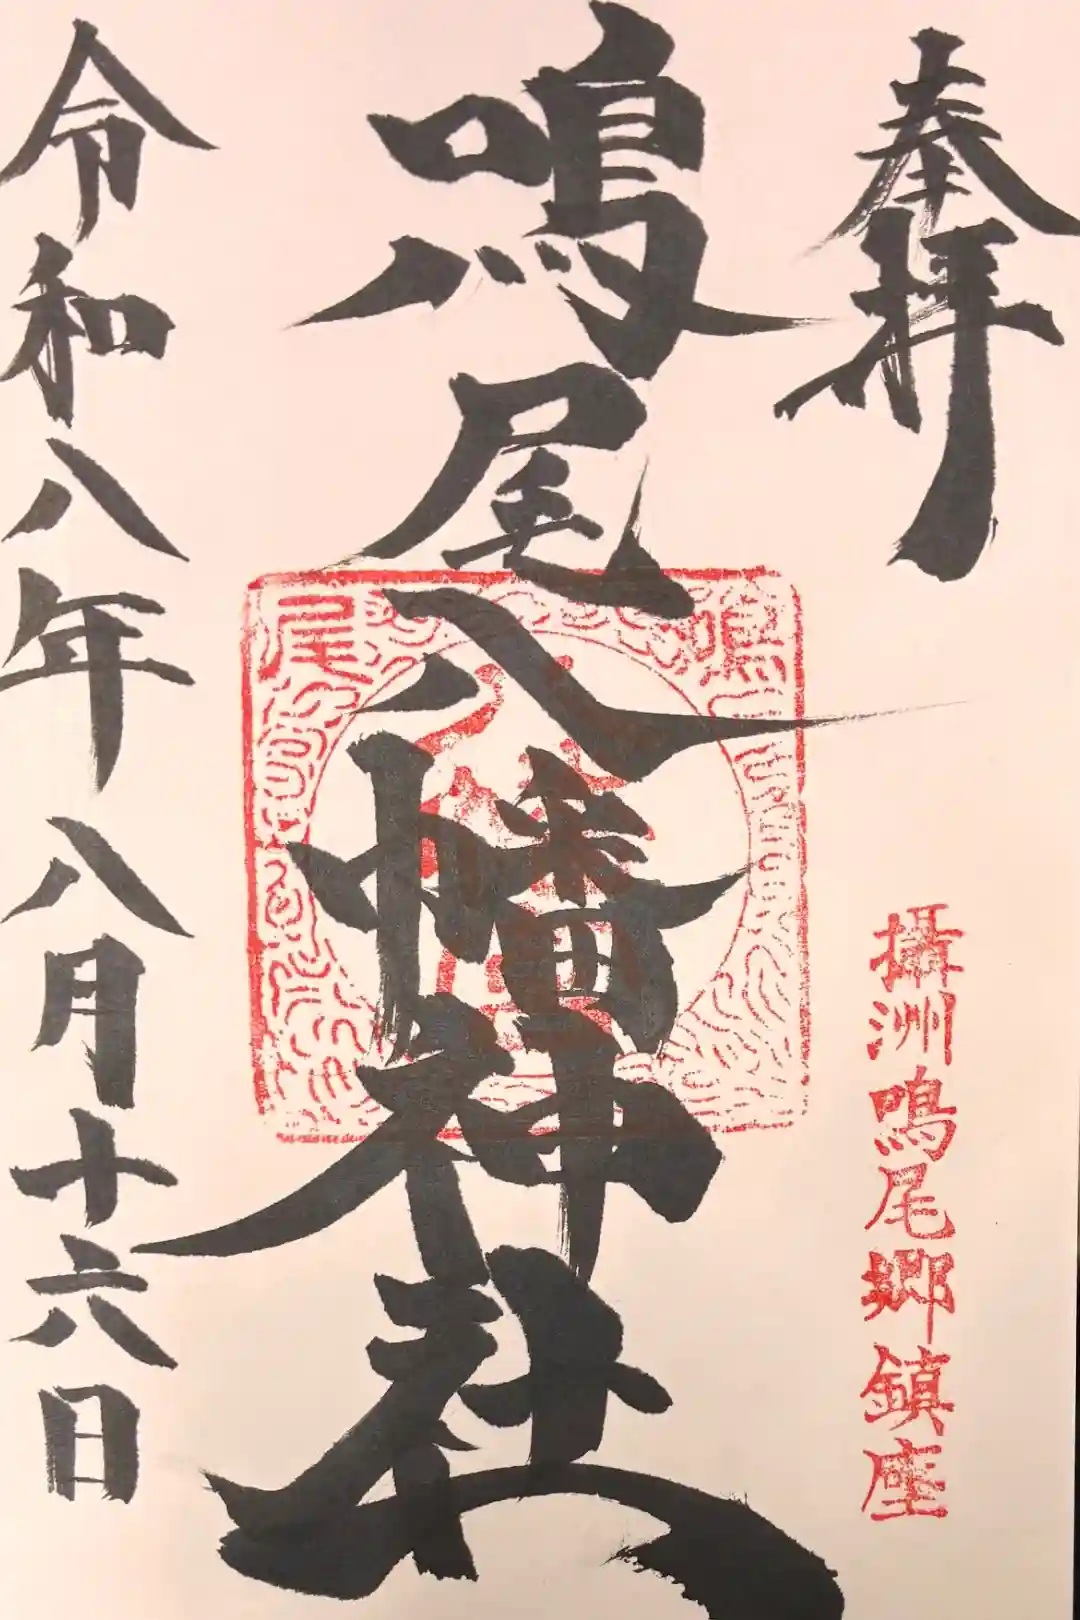 奉拝
攝洲鳴尾郷鎮座
鳴尾八幡神社
鳴尾
令和八年八月十六日